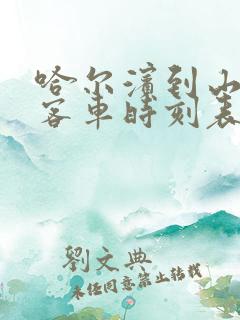 哈尔滨到山
客车时刻表
劉文典
未经同意禁止转载